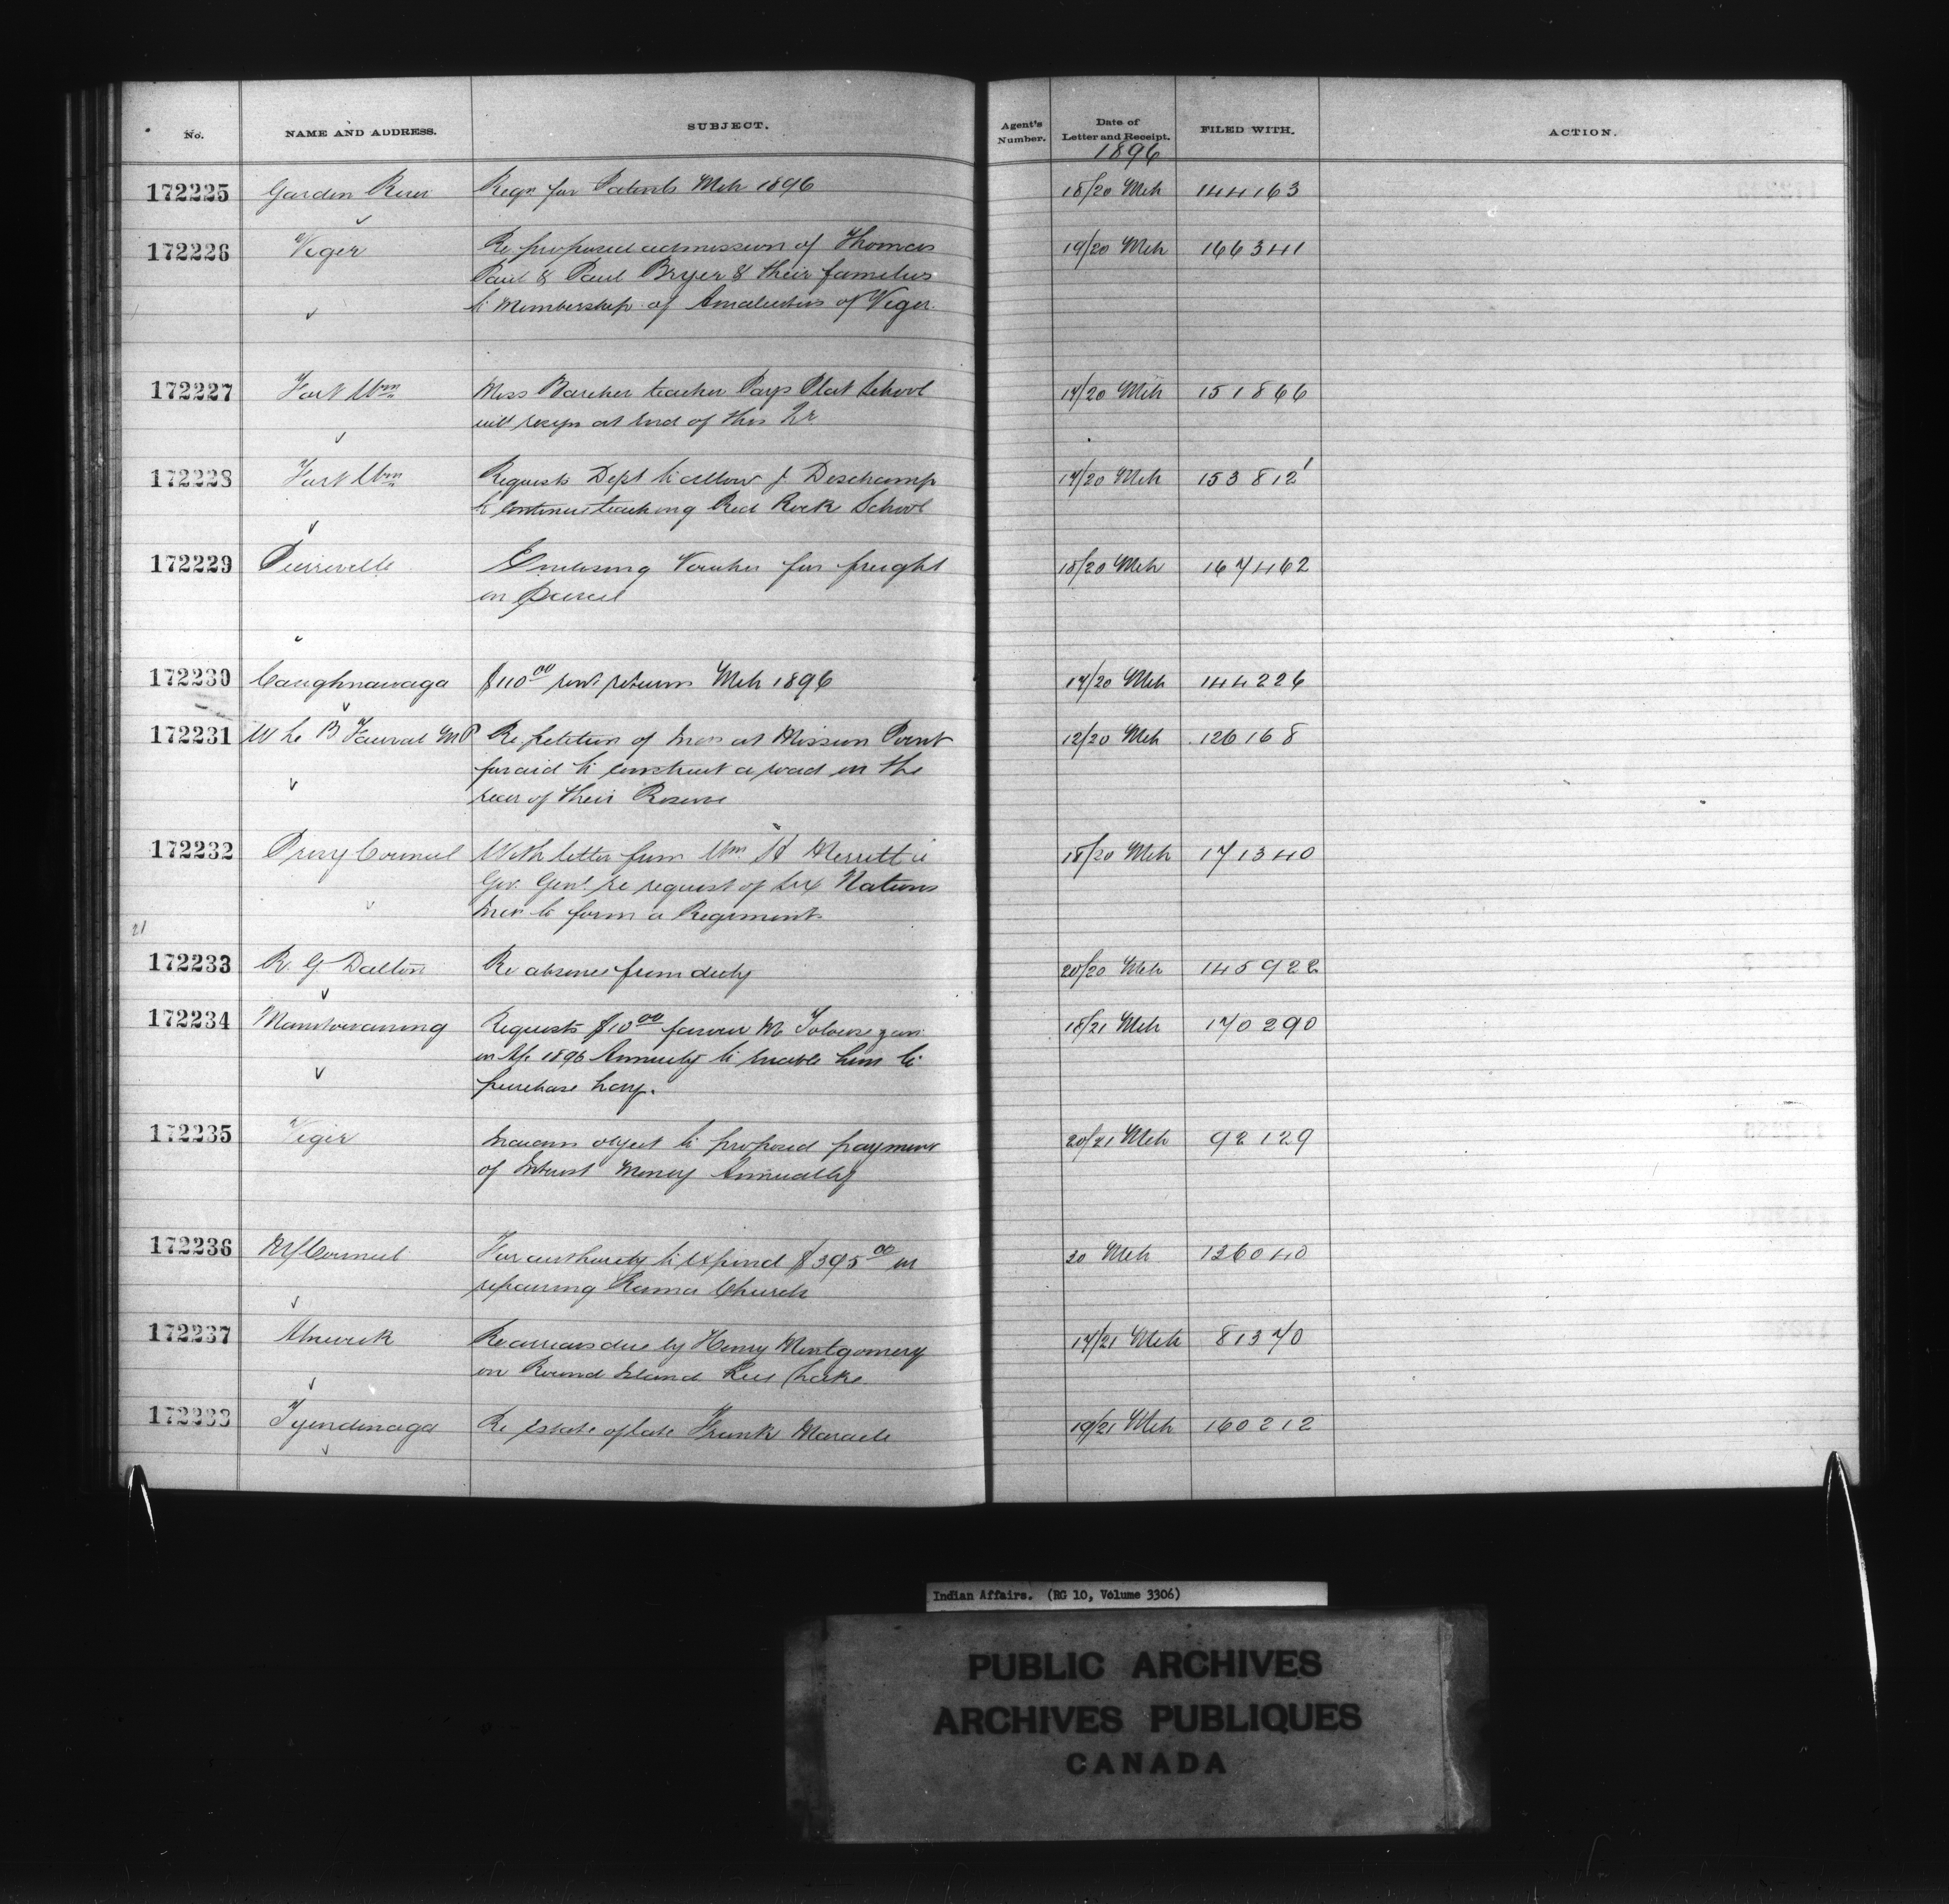 No. NAME AND ADDRESS. SUBJECT. Agent's Number. Date of Letter and Receipt. FILED WITH. ACTION.
1896
172225 Garden River Reqn for Patents Mch 1896 18/20 Mch 144163
172226 Viger Re proposed admission of Thomas 19/20 Mch 166341
Paul & Paul Bryer & their families
to Membership of Amalecites of Viger.
172227 Fort Wm Miss Barcher teacher Pays Plat School 17/20 Mch 151866
will resign at end of this Qr
172228 Fort Wm Requests Dept to allow J Deschamp 17/20 Mch 153812
to continue teaching Red Rock School
172229 Pierreville Enclosing Voucher for freight 18/20 Mch 167462
on parcel
172230 Caughnawaga $110.00 rent returns Mch 1896 17/20 Mch 144226
172231 Re petition of Inds at Mission Point 12/20 Mch 126168
for aid to construct a road in the
rear of their Reserve
172232 Privy Council With letter from Wm H Merritt to 18/20 Mch 171340
Gov. Genl re request of Six Nations
Inds to form a Regiment
21
172233 R. G Dalton Re absence from duty 20/20 Mch 145922
172234 Manitowaning Requests $10.00 favour M 18/21 Mch 170290
1896 Annuity to enable him to
purchase hay.
172235 Viger Indians object to proposed payment 20/21 Mch 92129
of Interest Money Annually
172236 Council For authority to expend $395.00 in 20 Mch 126040
repairing Rama Church
172237 Alnwick Re arrears due by Henry Montgomery 17/21 Mch 81370
on Round Island Rice Lake
172238 Tyendinaga Re Estate of late Frank Maracle 19/21 Mch 160212
Indian Affairs. (RG 10, Volume 3306)
PUBLIC ARCHIVES
ARCHIVES PUBLIQUES
CANADA